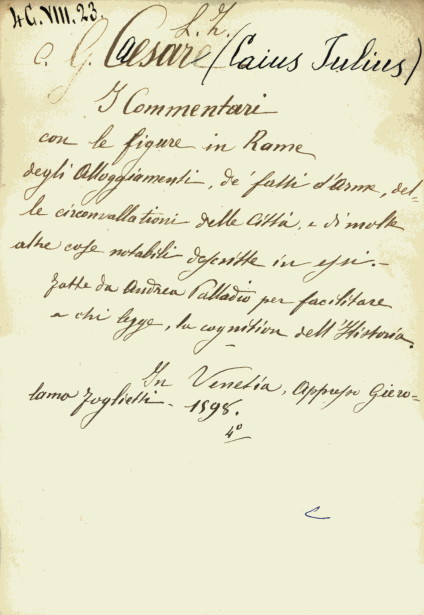 4C.VIII.23.
L. Z.
C. G. Caesar (Caius Julius)
I Commentari
con le figure in Rame
degli Alloggiamenti, de' fatti d'Arme, del-
le circonvallationi delle Città, e di molte
altre cose notabili descritte in essi.-
Fatte da Andrea Palladio per facilitare
a chi legge, la cognition dell'Historia.
In Venetia, Appresso Giero-
lamo Foglietti. 1598.
4º